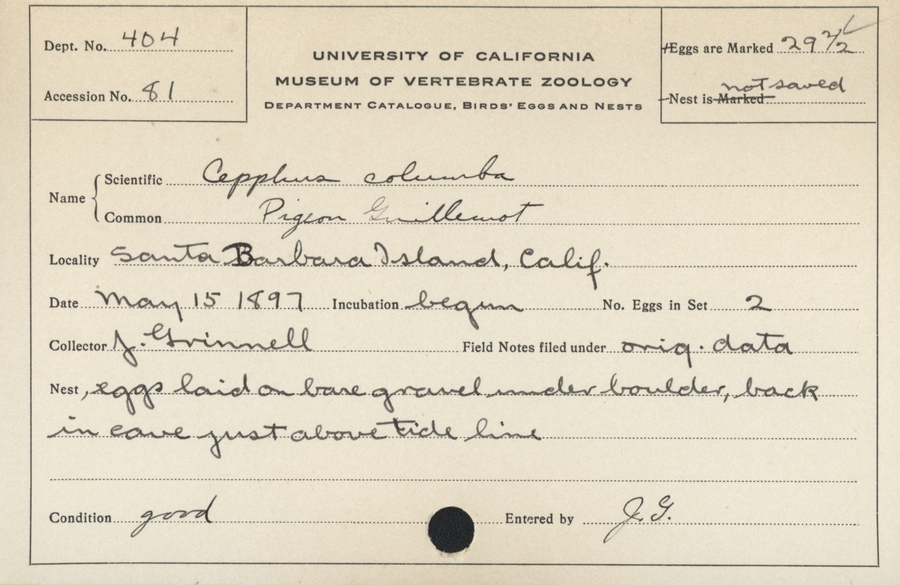 Dept. No. 404
Accession No. 81
UNIVERSITY OF CALIFORNIA
MUSEUM OF VERTEBRATE ZOOLOGY
DEPARTMENT CATALOGUE, BIRDS' EGGS AND NESTS
Eggs are Marked 29 2/2
not saved
Nest is Marked
Name
Scientific Cepphus columba
Common Pigeon Guillemot
Locality Santa Barbara Island, Calif.
Date May 15 1897 Incubation begun No. Eggs in Set 2
Collector J. Grinnell Field Notes filed under orig. data
Nest, eggs laid on bare gravel under boulder, back
in cave just above tide line
Condition good Entered by J.G.